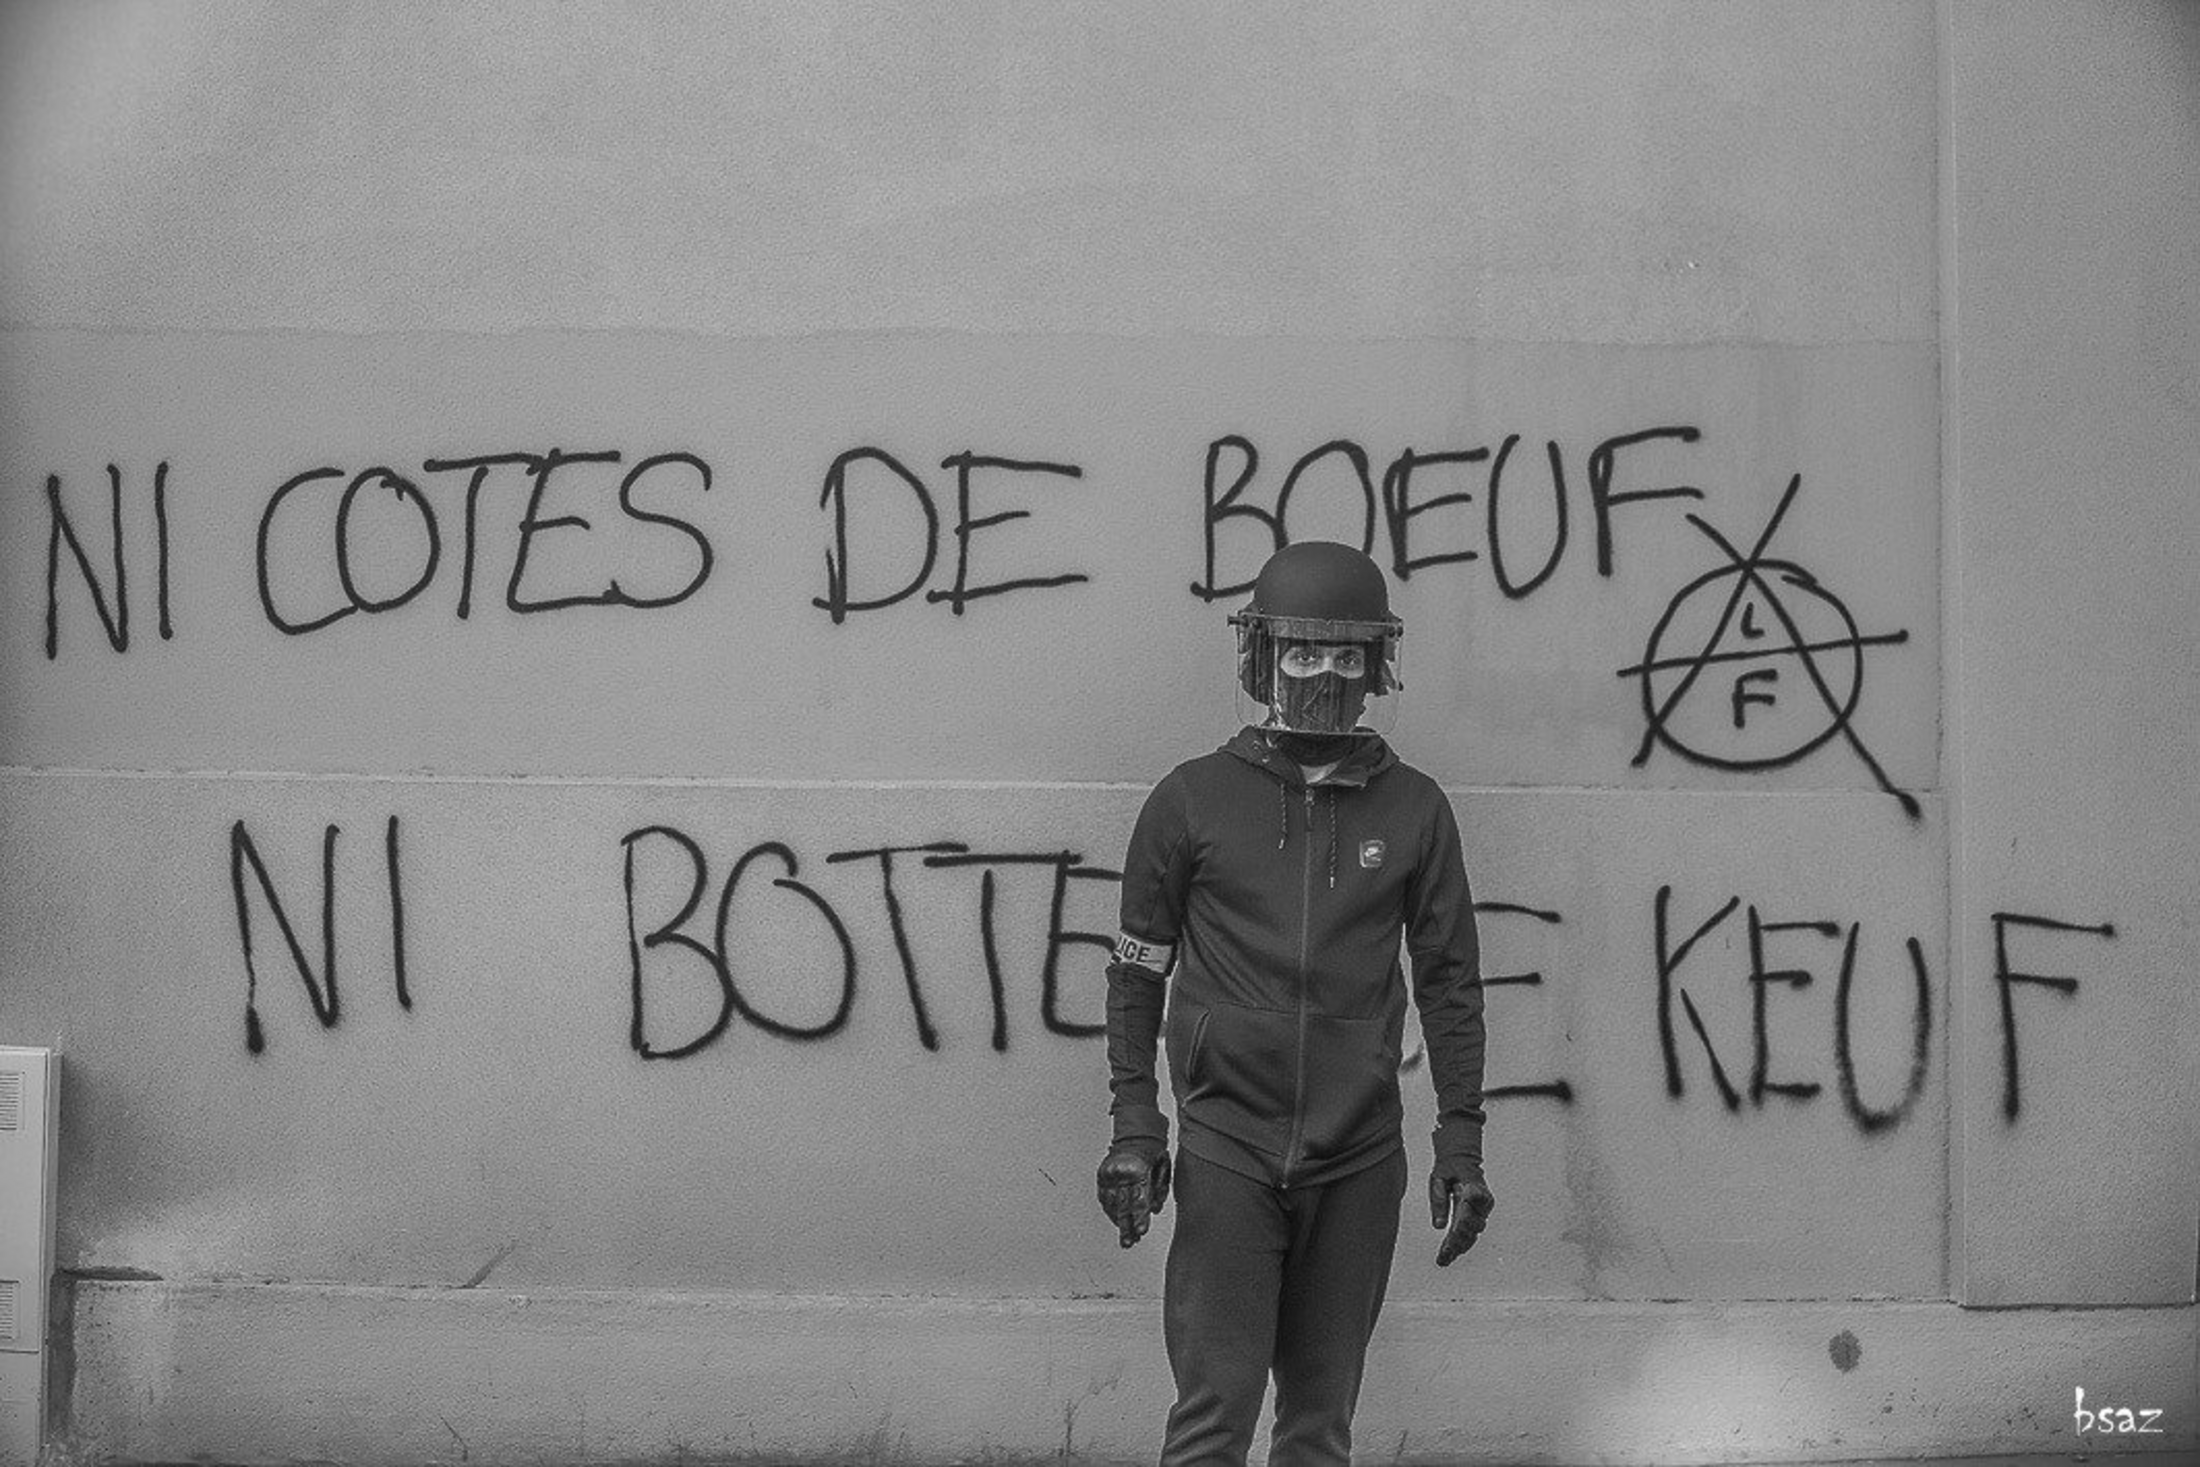 NI COTES DE BOEUF
ALF
NI BOTTE E KEUF
ICE
bsaz